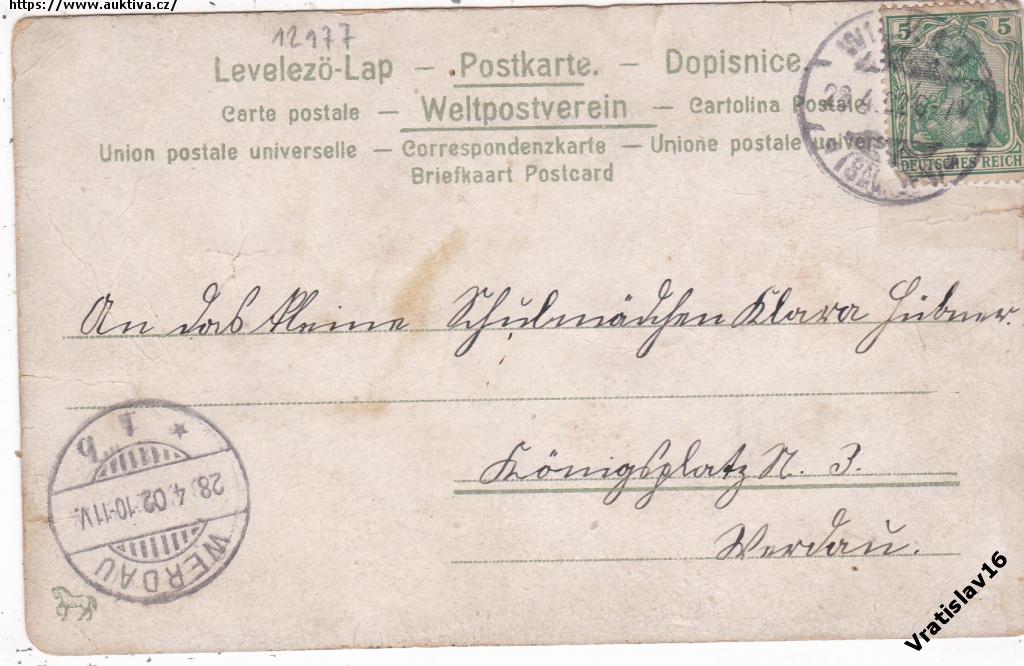 https://www.auktiva.cz/
12177
Levelezö-Lap — Postkarte. — Dopisnice.
Carte postale — Weltpostverein — Cartolina Postale
Union postale universelle — Correspondenzkarte — Unione postale univers
Briefkaart Postcard
5 5
DEUTSCHES REICH
An das kleine Schulmädchen Klara Hübner.
Königsplatz N. 3.
Werdau.
WERDAU
28.4.02.10-11V.
Vratislav16